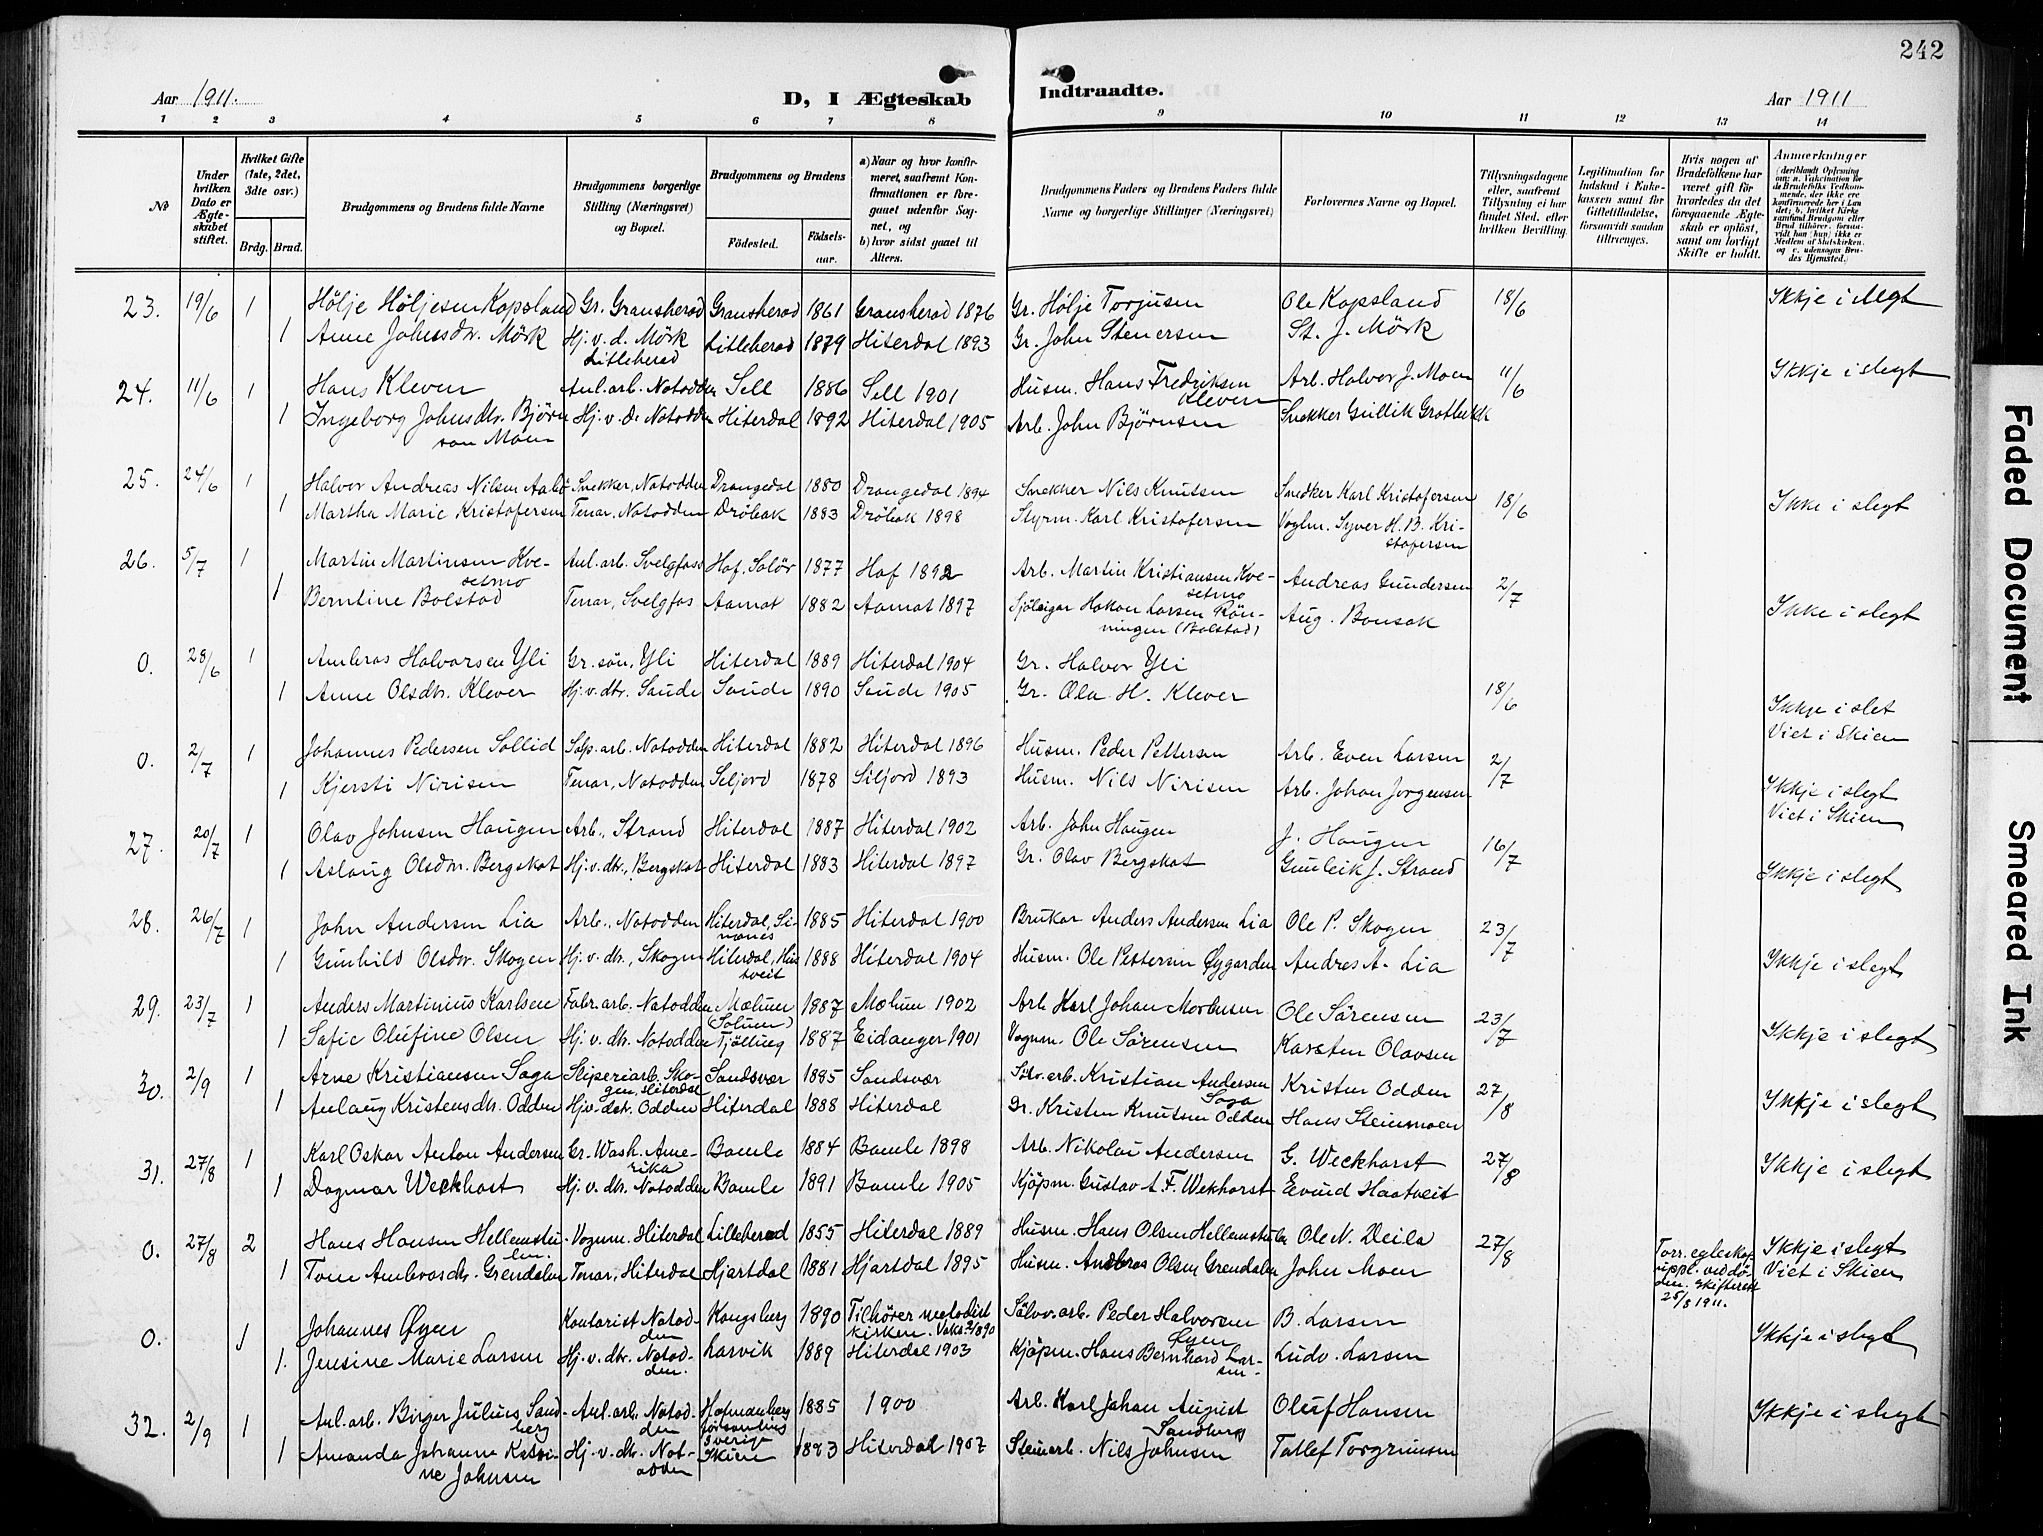 242
Aar 1911.
D, I Ægteskab
Indtraadte.
Aar 1911
1 2 3 4 5 6 7 8 9 10 11 12 13 14
No
Under hvilken Dato er Ægteskabet stiftet.
Hvilket Gifte (1ste, 2det, 3die osv.)
Brdg. Brud.
Brudgommens og Brudens fulde Navne
Brudgommens borgerlige Stilling (Næringsvei) og Bopæl.
Brudgommens og Brudens
Födested.
Födselsaar.
a) Naar og hvor konfirmeret, saafremt Konfirmationen er foregaaet udenfor Sognet, og
b) hvor sidst gaaet til Alters.
Brudgommens Faders og Brudens Faders fulde Navne og borgerlige Stillinger (Næringsvei)
Forlovernes Navne og Bopæl.
Tillysningsdagene eller, saafremt Tillysning ei har fundet Sted, efter hvilken Bevilling.
Legitimation for Indskud i Enkekassen samt for Giftetilladelse, forsaavidt saadan tiltrænges.
Hvis nogen af Brudefolkene har været gift för hvorledes da det foregaaende Ægteskab er oplöst, samt om lovligt Skifte er holdt.
Anmærkninger (deriblandt Oplysning om: a. Vakcination for de Brudefolks Vedkommende, der ikke ere konfirmerede her i Landet; b. hvilket Kirkesamfund Brudgom eller Brud tilhörer, forsaavidt han (hun) ikke er Medlem af Statskirken, og c. udensogns Brudes Hjemsted.)
23. 19/6 1 Hølje Høljesen Kopsland Gr. Gransherad Gransherad 1861 Gransherad 1876 Gr. Hølje Torjusen Ole Kopsland 18/6 Ikkje i slegt
1 Anne Johnsdtr. Mörk Hj. v. d. Mörk Litleherad Litleherad 1879 Hiterdal 1893 Gr. John Stenersen St. J. Mörk
24. 11/6 1 Hans Kleven Anl. arb. Notodden Sell 1886 Sell 1901 Husm. Hans Fredriksen Kleven Arb. Halvor J. Moen 11/6 Ikkje i slegt
1 Ingeborg Johnsdtr. Björnson Moen Hj. v. d. Notodden Hiterdal 1892 Hiterdal 1905 Arb. John Björnsen Snekker Gullik Grotbekk
25. 24/6 1 Halvor Andreas Nilsen Aabö Snekker, Notodden Drangedal 1880 Drangedal 1894 Snekker Nils Knutsen Snedker Karl Kristofersen 18/6 Ikke i slegt
1 Martha Marie Kristofersen Tenar, Notodden Dröbak 1883 Dröbak 1898 Styrm. Karl Kristofersen Vognm. Syver H. B. Kristofersen
26. 5/7 1 Martin Martinsen Kvesetmo Anl. arb. Svelgfoss Hof, Solör 1877 Hof 1892 Arb. Martin Kristiansen Kvesetmo Andreas Gundersen 2/7 Ikke i slegt
1 Berntine Bolstad Tenar, Svelgfos Aamot 1882 Aamot 1897 Sjöleigar Hakon Larsen Rönningen (Bolstad) Aug. Bonsak
0. 28/6 1 Ambros Halvorsen Yli Gr. søn, Yli Hiterdal 1889 Hiterdal 1904 Gr. Halvor Yli 18/6
1 Anne Olsdtr. Klever Hj. v. dtr. Saude Saude 1890 Saude 1905 Gr. Ola H. Klever Ikkje i slet
Viet i Skien
0. 2/7 1 Johannes Pedersen Sollid Salp. arb. Notodden Hiterdal 1882 Hiterdal 1896 Husm. Peder Pettersen Arb. Even Larsen 2/7
1 Kjersti Nirisen Tenar, Notodden Seljord 1878 Siljord 1893 Husm. Nils Nirisen Arb. Johan Jorgensen Ikkje i slegt
Viet i Skien
27. 20/7 1 Olav Johnsen Haugen Arb., Strand Hiterdal 1887 Hiterdal 1902 Arb. John Haugen J. Haugen 16/7
1 Aslaug Olsdtr. Bergskot Hj. v. dtr., Bergskot Hiterdal 1883 Hiterdal 1897 Gr. Olav Bergskot Gunleik J. Strand Ikkje i slegt
28. 26/7 1 John Andersen Lia Arb., Notodden Hiterdal, Simones 1885 Hiterdal 1900 Brukar Anders Andersen Lia Ole P. Skogen 23/7
1 Gunhild Olsdtr. Skogen Hj. v. dtr., Skogen Hiterdal, Hustveit 1888 Hiterdal 1904 Husm. Ole Pettersen Øygarden Andres A. Lia Ikkje i slegt
29. 23/7 1 Anders Martinius Karlsen Fabr. arb. Notodden Mælum (Solum) 1887 Mælum 1902 Arb. Karl Johan Mortensen Ole Sörensen 23/7
1 Sofie Olufine Olsen Hj. v. dtr. Notodden Tjölling 1887 Eidanger 1901 Vognm. Ole Sörensen Karsten Olavsen Ikkje i slegt
30. 2/9 1 Arne Kristiansen Saga Sliperiarb. Skogen, Hiterdal Sandsvær 1885 Sandsvær Sölv. arb. Kristian Andersen Saga Kristen Odden 27/8
1 Anlaug Kristensdtr. Odden Hj. v. dtr. Odden Hiterdal 1888 Hiterdal Gr. Kristen Knutsen Odden Hans Steinmoen Ikkje i slegt
31. 27/8 1 Karl Oskar Anton Andersen Gr. Wash. Amerika Bamle 1884 Bamle 1898 Arb. Nikolai Andersen G. Weckhorst 27/8 Ikkje i slegt
1 Dagmar Weckhost Hj. v. dtr. Notodden Bamle 1891 Bamle 1905 Kjöpm. Gustav A. F. Wekhorst Eivind Haatveit
0. 27/8 2 Hans Hansen Hellemstulen Vognm. Hiterdal Lilleherad 1855 Hiterdal 1889 Husm. Hans Olsen Hellemstulen Ole N. Deila 27/8 Forr. egteskap uppl. ved døden. Skifterett 25/8 1911. Ikkje i slegt
Viet i Skien
1 Tone Ambrosdtr. Grendalen Tenar, Hiterdal Hjartdal 1881 Hjartdal 1895 Husm. Ambros Olsen Grendalen John Moen
0. 1 Johannes Øyen Kontorist Notodden Kongsberg 1890 Tilhörer metodistkirken. Vaks. 2/8 90 Sölvv. arb. Peder Halvorsen Øyen B. Larsen Ikkje i slegt
1. Jensine Marie Larsen Hj. v. dtr. Notodden. Larvik 1889 Hiterdal 1903 Kjöpm. Hans Bernhard Larsen Ludv. Larsen
32. 2/9 1 Anl. arb. Birger Julius Sandberg Anl. arb. Notodden församling Sverige 1885 1900 Arb. Karl Johan August Sandberg Oluf Hansen Ikkje i slegt
1 Amanda Johanne Katrine Johnsen Hj. v. dtr. Notodden Skien 1883 Hiterdal 1907 Steinarb. Nils Johnsen Tallef Torgrimsen
Faded Document
Smeared Ink